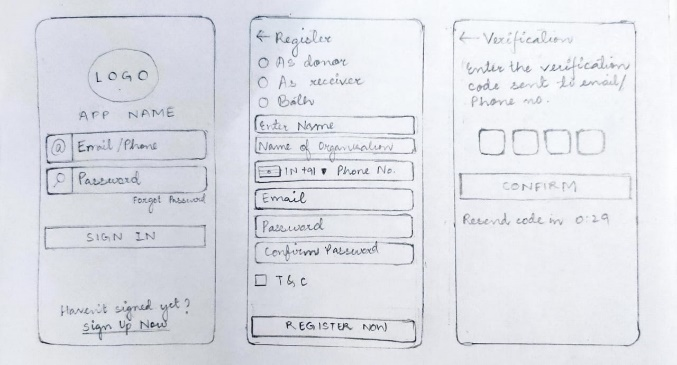 LOGO
APP NAME
@ Email/Phone
Password
Forgot Password
SIGN IN
Haven't signed yet?
Sign Up Now
← Register
As donor
As receiver
Both
Enter Name
Name of Organisation
IN +91 ▾ Phone No.
Email
Password
Confirm Password
T & C
REGISTER NOW
← Verification
Enter the verification
code sent to email/
Phone no.
CONFIRM
Resend code in 0:29